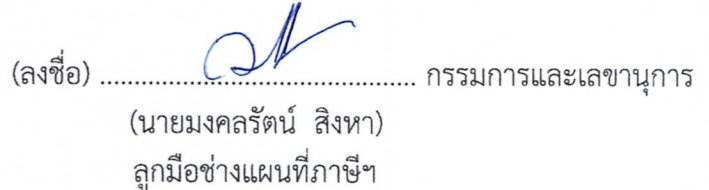 (ลงชื่อ) ................................................ กรรมการและเลขานุการ
(นายมงคลรัตน์ สิงหา)
ลูกมือช่างแผนที่ภาษีฯ